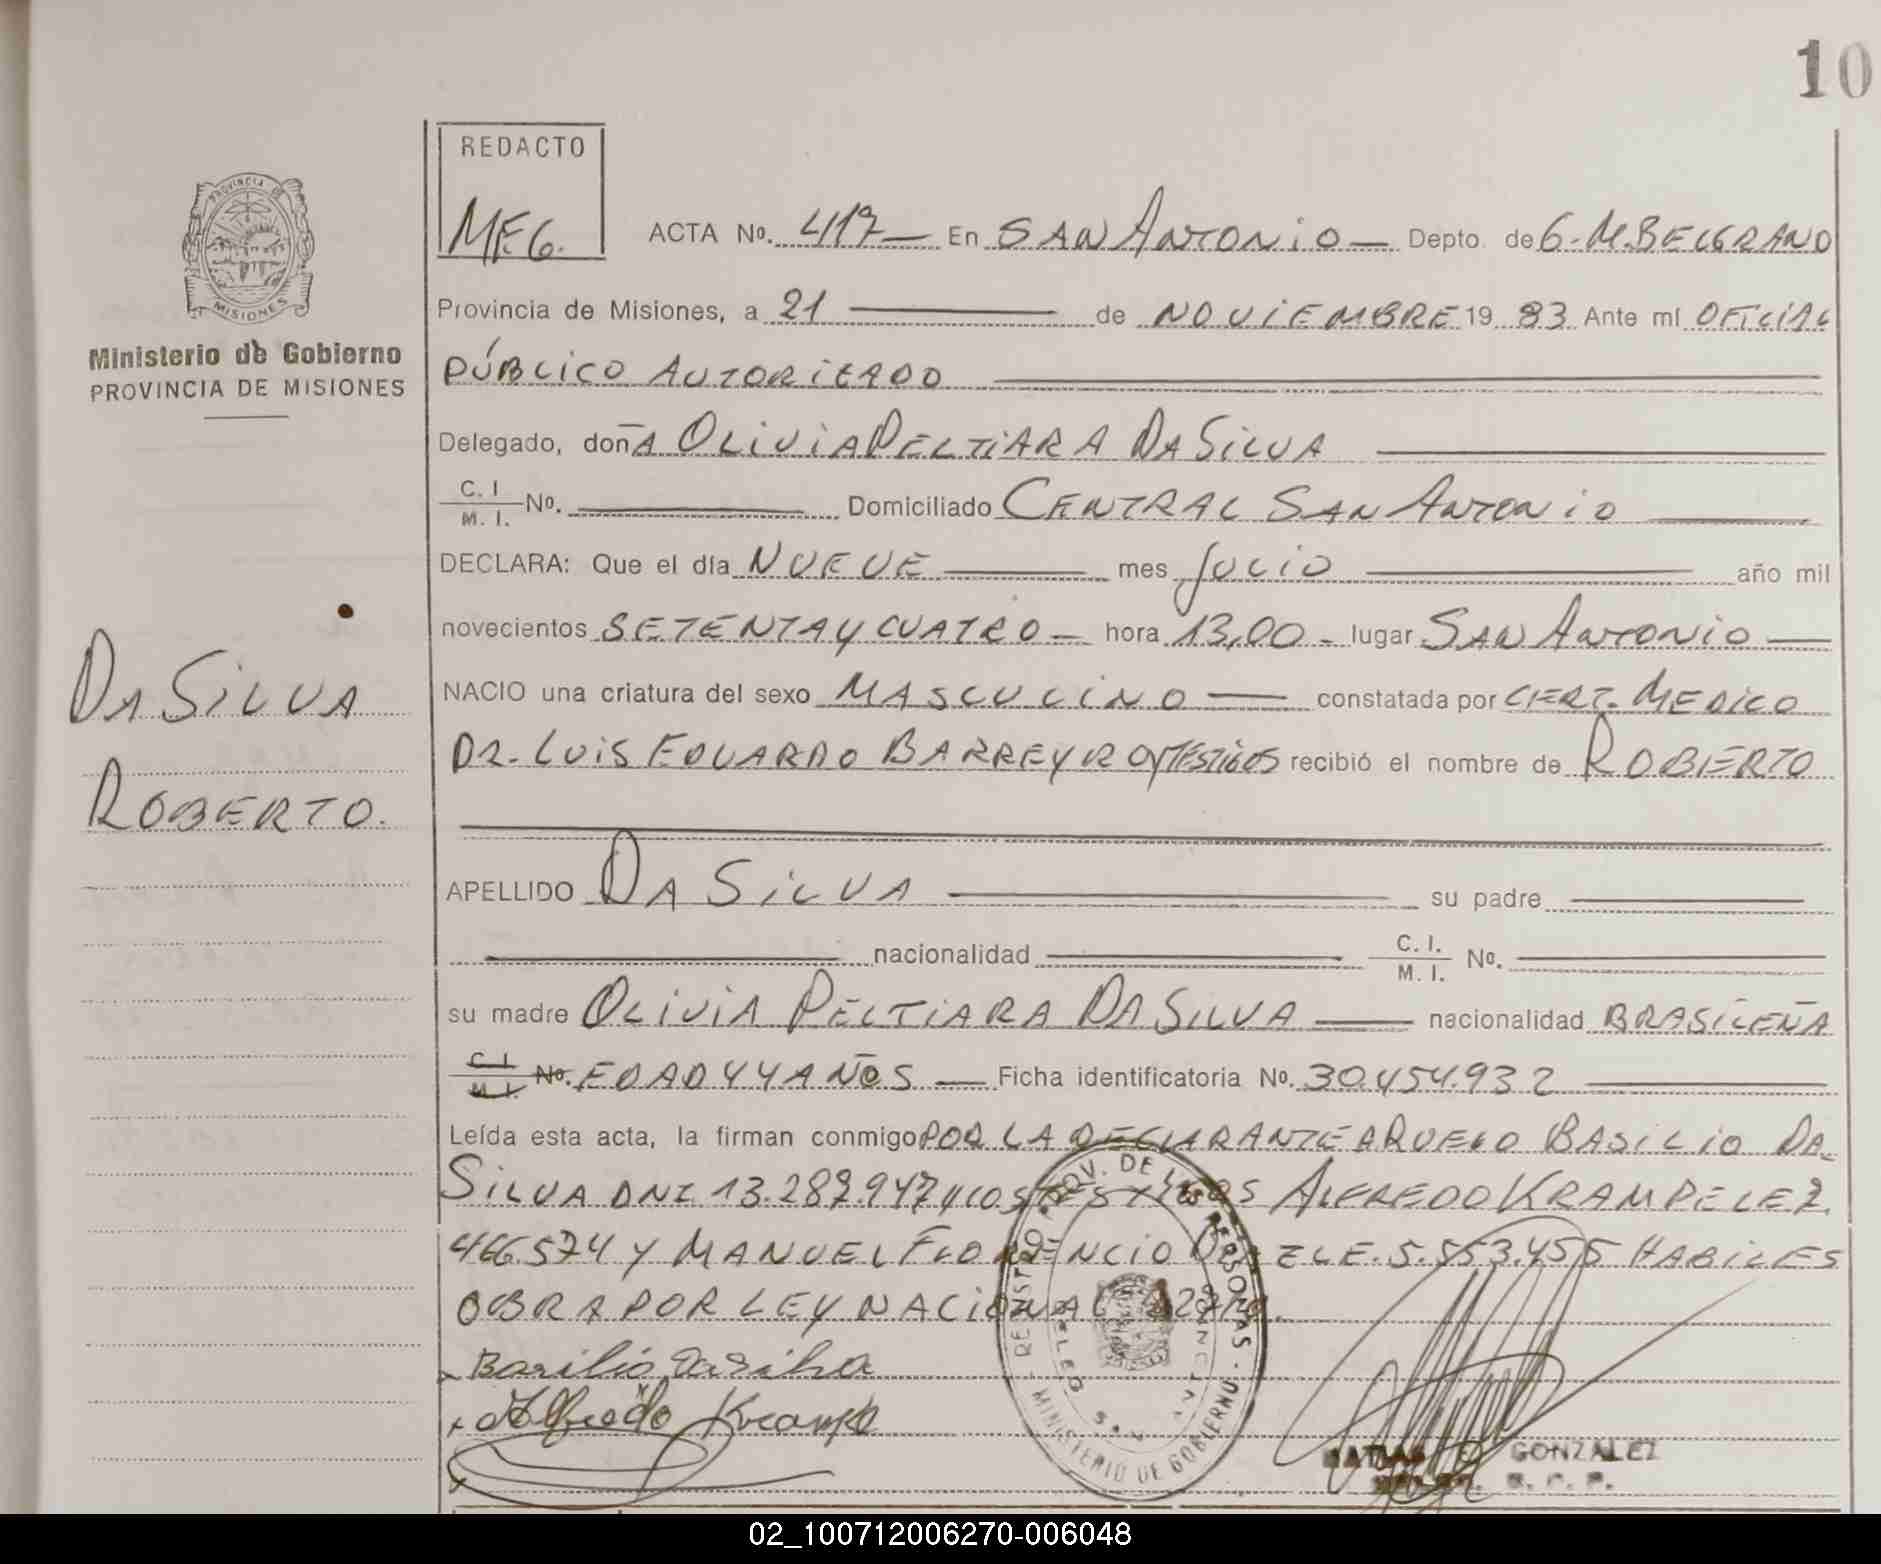 10
REDACTO
MEG.
ACTA No. 417 En SAN ANTONIO Depto. de G. M. BELGRANO
PROVINCIA DE
MISIONES
Provincia de Misiones, a 21 de NOVIEMBRE 19 83 Ante mí OFICIAL
Ministerio de Gobierno
PROVINCIA DE MISIONES
PÚBLICO AUTORIZADO
Delegado, doñA OLIVIA PELTIARA DA SILVA
C. I. M. I. No. Domiciliado CENTRAL SAN ANTONIO
DECLARA: Que el día NUEVE mes JULIO año mil
novecientos SETENTA Y CUATRO hora 13,00 lugar SAN ANTONIO
DA SILVA
ROBERTO.
NACIO una criatura del sexo MASCULINO constatada por CERT. MEDICO
DR. LUIS EDUARDO BARREYRO Y TESTIGOS recibió el nombre de ROBERTO
APELLIDO DA SILVA su padre
nacionalidad C. I. M. I. No.
su madre OLIVIA PELTIARA DA SILVA nacionalidad BRASILEÑA
C. I. M. I. No. EDAD 44 AÑOS Ficha identificatoria No. 30.454.932
Leída esta acta, la firman conmigo POR LA DECLARANTE A RUEGO BASILIO DA
SILVA DNI. 13.287.947 Y LOS TESTIGOS ALFREDO KRAMPE LE 7.
466574 Y MANUEL FLORENCIO LE. 5.553.455 HABILES
OBRA POR LEY NACIONAL
Basilio Dasilva
Alfredo Krampe
REGISTRO PROV. DE LAS PERSONAS
MINISTERIO DE GOBIERNO
GONZALEZ
R. P. P.
02_100712006270-006048